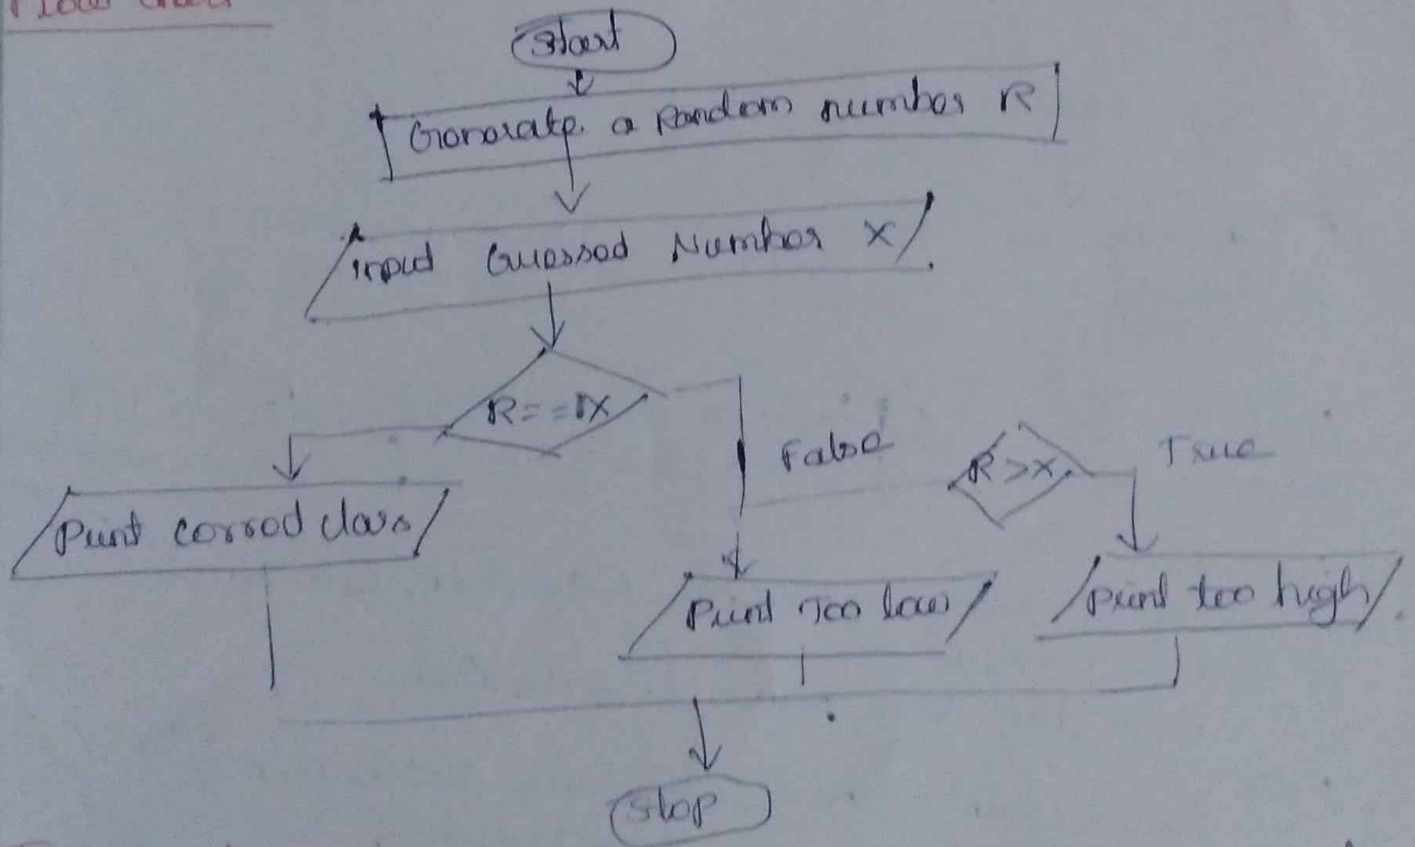 Flow chart
Start
Generate a Random number R
input Guessed Number X
R==X
False
R>X
True
Print correct
Print Too low
print too high
Stop